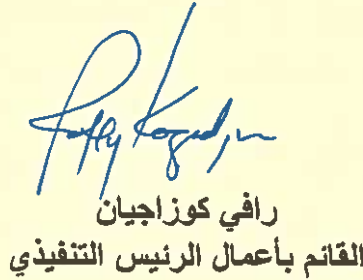 رافي كوزاجيان
القائم بأعمال الرئيس التنفيذي